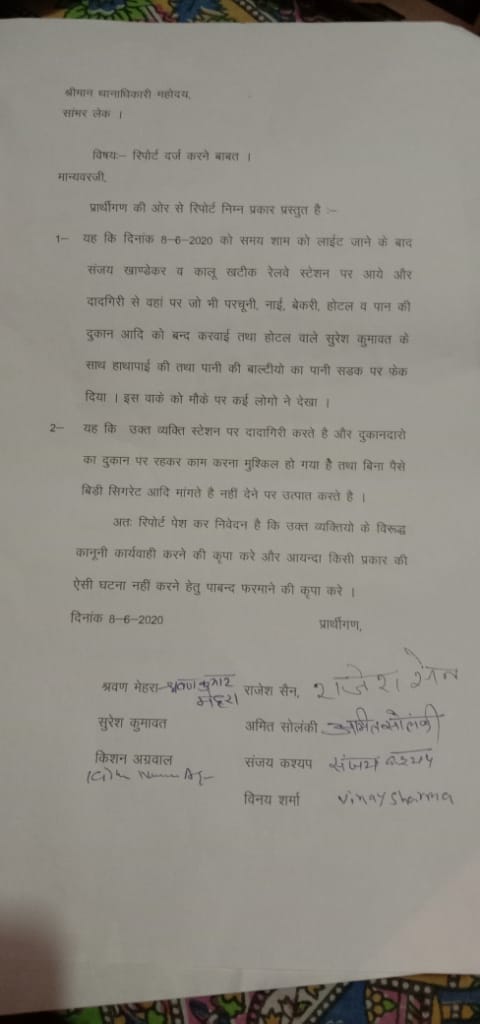 श्रीमान थानाधिकारी महोदय,
सांभर लेक ।
विषयः– रिपोर्ट दर्ज करने बाबत ।
मान्यवरजी,
प्रार्थीगण की ओर से रिपोर्ट निम्न प्रकार प्रस्तुत है :–
1– यह कि दिनांक 8–6–2020 को समय शाम को लाईट जाने के बाद
संजय खाण्डेकर व कालू खटीक रेलवे स्टेशन पर आये और
दादगिरी से वहां पर जो भी परचूनी, नाई, बेकरी, होटल व पान की
दुकान आदि को बन्द करवाई तथा होटल वाले सुरेश कुमावत के
साथ हाथापाई की तथा पानी की बाल्टीयो का पानी सडक पर फेक
दिया । इस वाके को मौके पर कई लोगो ने देखा ।
2– यह कि उक्त व्यक्ति स्टेशन पर दादागिरी करते है और दुकानदारो
का दुकान पर रहकर काम करना मुश्किल हो गया है तथा बिना पैसे
बिडी सिगरेट आदि मांगते है नहीं देने पर उत्पात करते है ।
अतः रिपोर्ट पेश कर निवेदन है कि उक्त व्यक्तियो के विरूद्ध
कानूनी कार्यवाही करने की कृपा करे और आयन्दा किसी प्रकार की
ऐसी घटना नहीं करने हेतु पाबन्द फरमाने की कृपा करे ।
दिनांक 8–6–2020 प्रार्थीगण,
श्रवण मेहरा– श्रवण कुमार मेहरा राजेश सैन, राजेश सैन
सुरेश कुमावत अमित सोलंकी अमित सोलंकी
किशन अग्रवाल संजय कश्यप संजय कश्यप
विनय शर्मा Vinay Sharma